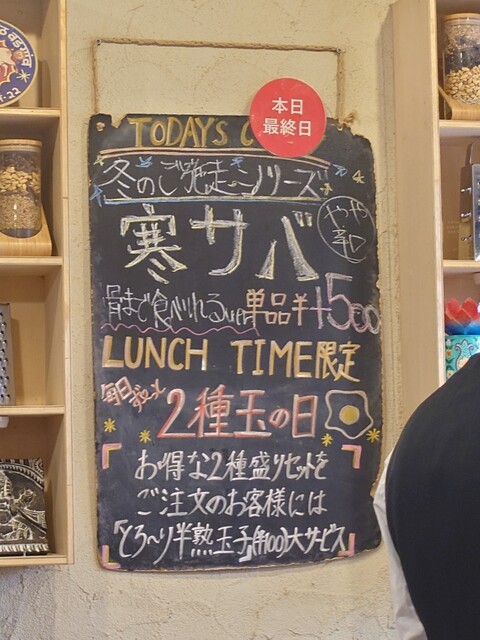 本日
最終日
TODAY'S C
冬のご馳走シリーズ
寒サバ
やや
辛口
骨まで食べれる 単品¥1500
LUNCH TIME限定
毎日ずっと
2種玉の日
お得な2種盛りセットを
ご注文のお客様には
「とろ〜り半熟玉子」(¥100)大サービス